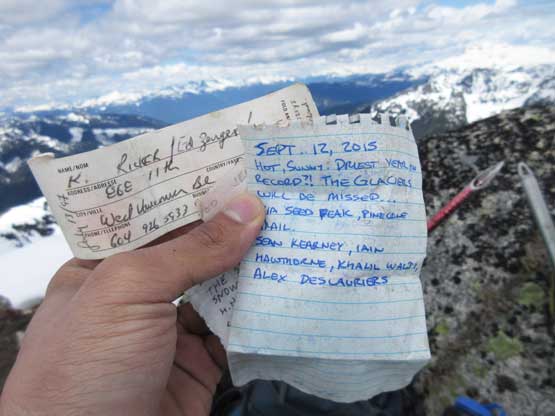 NAME/NOM
K. RICKER / Ed Zenger
ADDRESS/ADRESSE
868 11th
CITY/VILLE
COUNTRY/PAYS
West Vancouver BC
PHONE/TELEPHONE
604 926 5933
SEPT. 12, 2015
HOT, SUNNY. DRIEST YEAR ON
RECORD?! THE GLACIERS
WILL BE MISSED...
VIA SEED PEAK, PINECONE
TRAIL.
SEAN KEARNEY, IAIN
HAWTHORNE, KHALIL WALJI,
ALEX DESLAURIERS
THE
SNOW